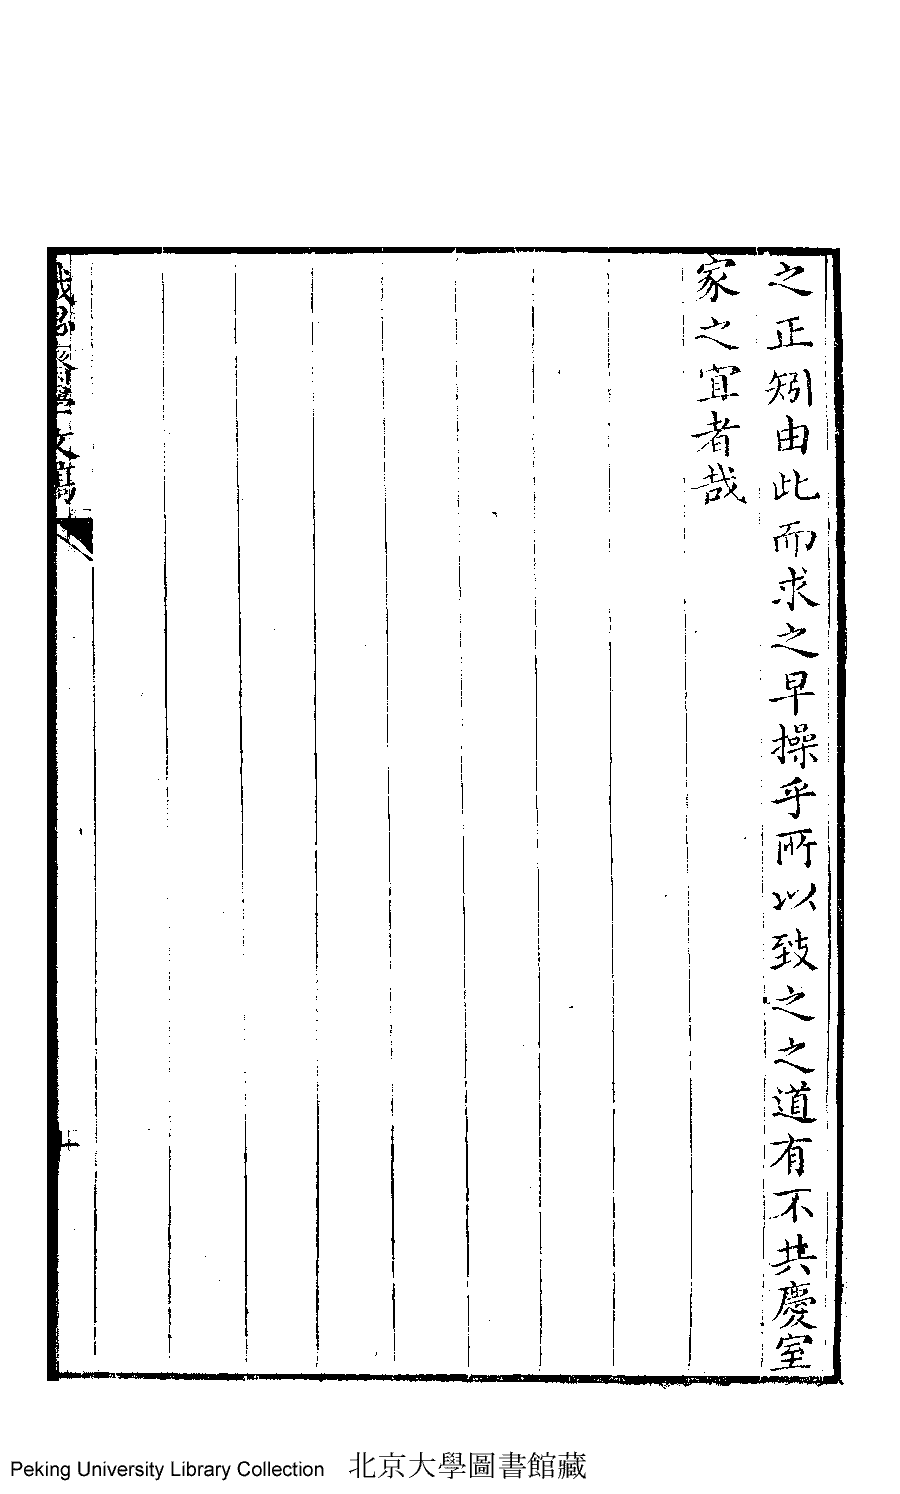 之正矧由此而求之早操乎所以致之之道有不共慶室
家之宜者哉
齋學文寫
十
Peking University Library Collection 北京大學圖書館藏